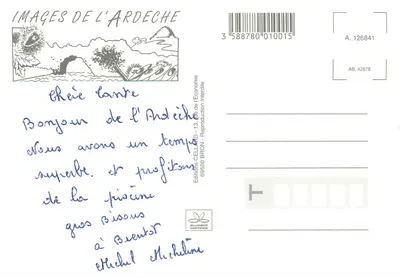 IMAGES DE L'ARDECHE
3 588780 010015
A. 126841
AB. 42876
Chère Tante
Bonjour de l'Ardèche
Nous avons un temps
superbe et profitons
de la piscine
gros Bisous
à Bientôt
Michel Micheline
Editions CELLARD - 13 de l'Economie
69500 BRON - Reproduction Interdite